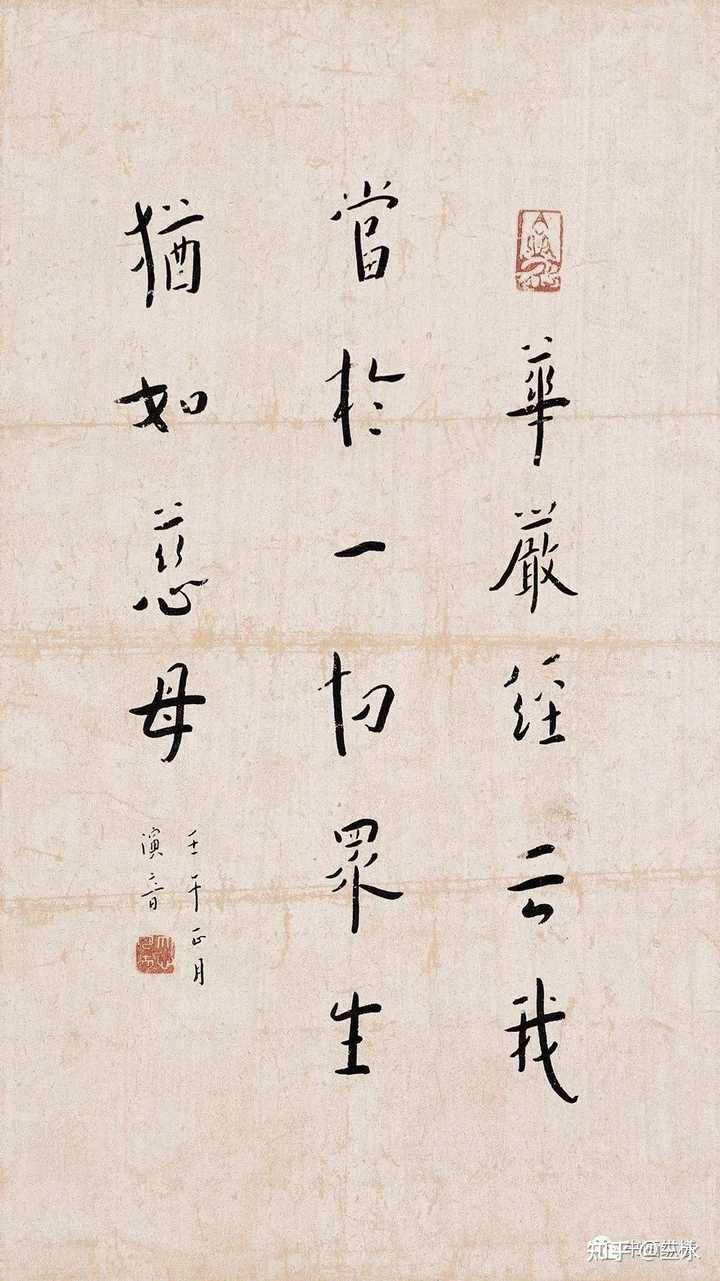 華嚴經云我
當於一切眾生
猶如慈母
壬午正月
演音
知乎